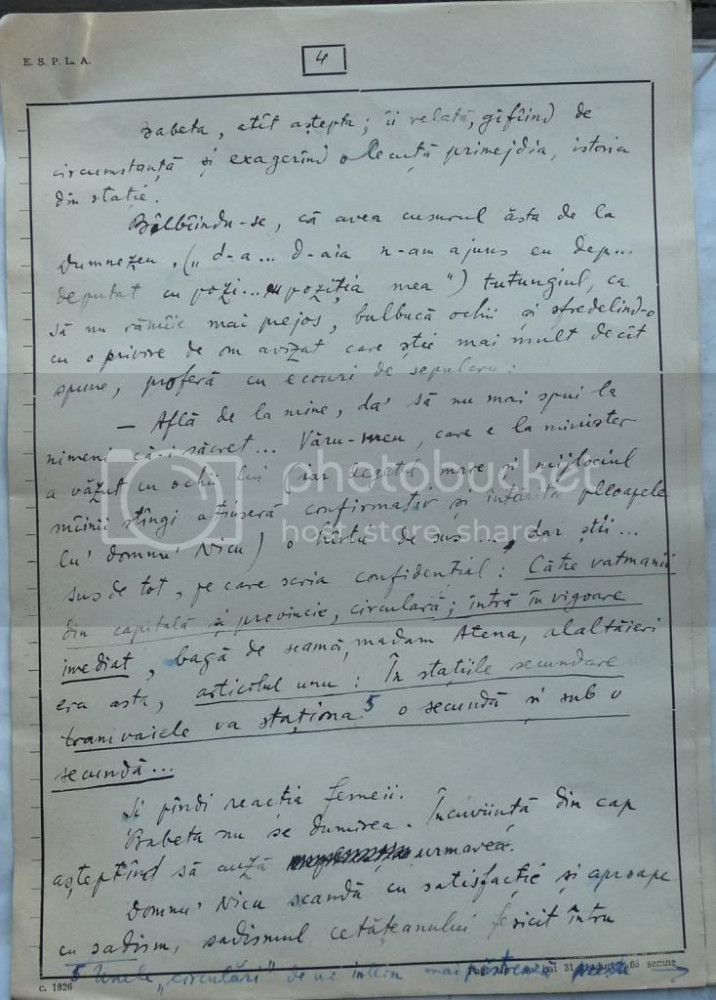 E. S. P. L. A.
4
Babeta, atît aștepta; îi relată, gîfîind de
circumstanță și exagerînd o lecuță primejdia, istoria
din stație.
Bîlbîindu-se, că avea cusurul ăsta de la
Dumnezeu, („d-a... d-aia n-am ajuns eu dep...
deputat cu pozi... poziția mea") tutungiul, ca
să nu rămîie mai prejos, bulbucă ochii și sfredelind-o
cu o privire de om avizat care știe mai mult decît
spune, proferă cu ecouri de sepulcru:
— Află de la mine, da' să nu mai spui la
nimeni că-i săcret... Văru-meu, care e la minister
a văzut cu ochii lui (iar degetul mare și mijlociul
mîinii stîngi atinseră confirmativ și întărită pleoapele
lu' domnu' Nicu) o hîrtie de sus... dar știi...
sus de tot, pe care scria confidențial: Către vatmanii
din capitală și provincie, circulară; intră în vigoare
imediat, bagă de seamă, madam Atena, alaltăieri
era asta, articolul unu: În stațiile secundare
tramvaiele va staționa 5 o secundă și sub o
secundă...
Și pîndi reacția femeii.
Babeta nu se dumirea. Încuviință din cap
așteptînd să auză urmarea.
Domnu' Nicu scandă cu satisfacție și aproape
cu sadism, sadismul cetățeanului fericit întru
5 Unele „circulări" de uz intern mai păstrează
31 65 semne
c. 1826
photobucket
host. store. share.